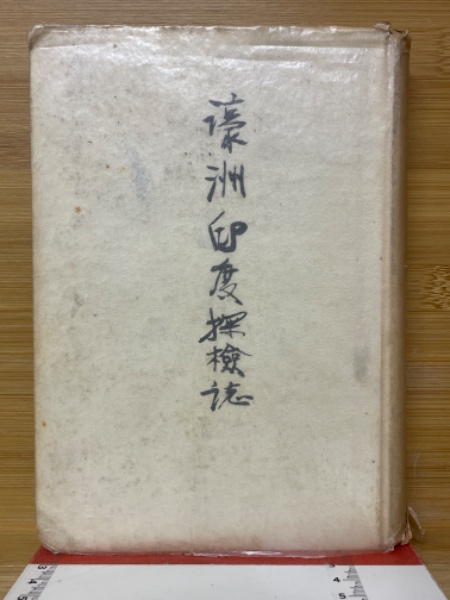 濠洲印度探檢誌